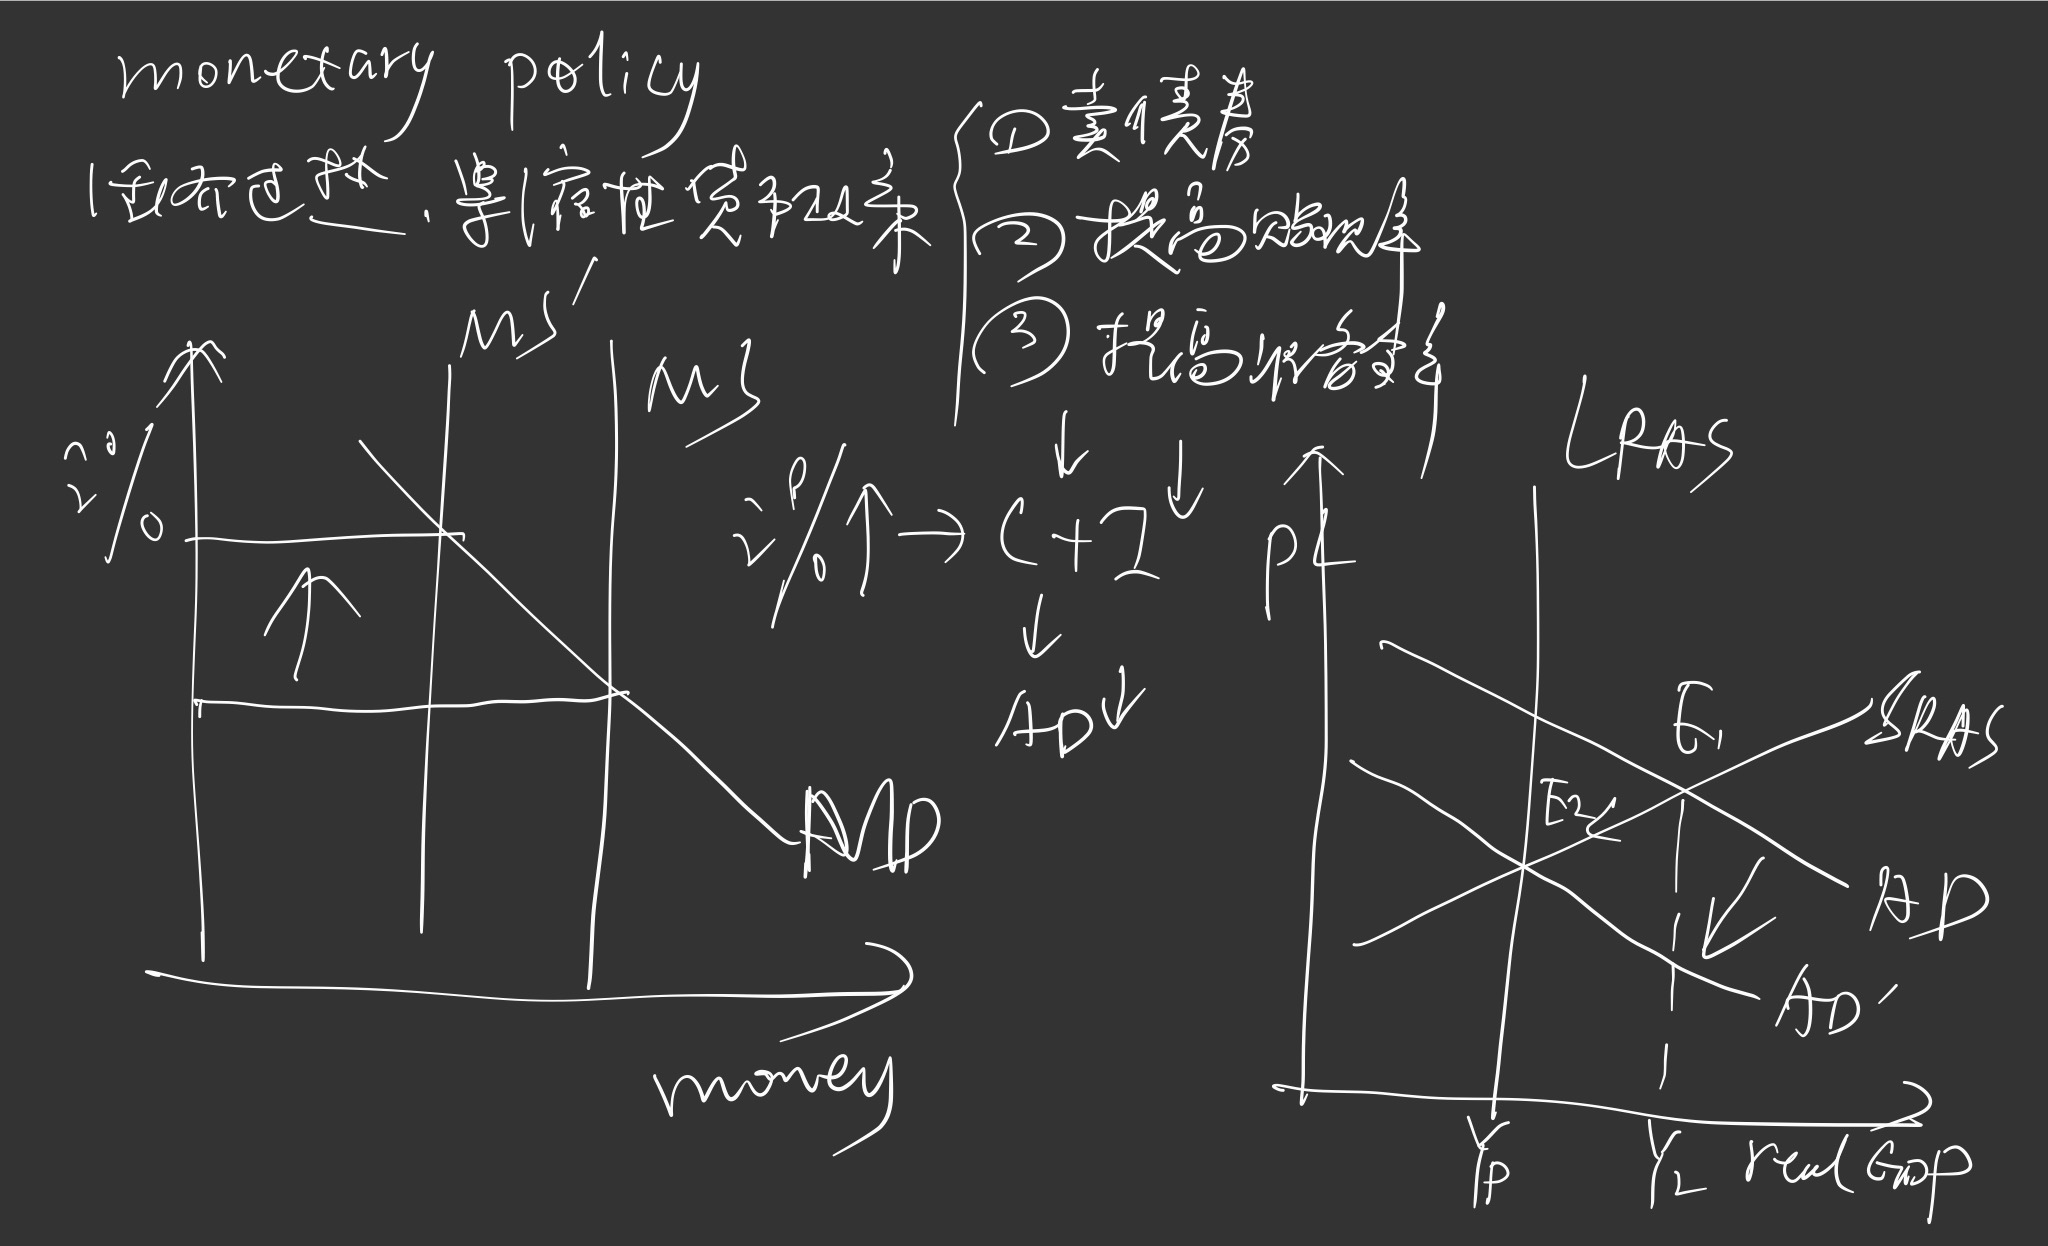 monetary policy
经济过热.紧缩性货币政策
① 卖债券
② 提高贴现率
③ 提高准备金率
MS'
MS
i%
i%↑→C+I↓
↓
↓
AD↓
MD
money
LRAS
PL
E₁
SRAS
E₂
AD
AD'
Yp
Y₂
real GDP